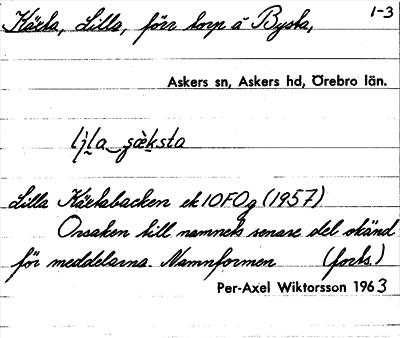 Käxta, Lilla, förr torp å Bysta,
1-3
Askers sn, Askers hd, Örebro län.
Lilla Käxtabacken ek 10FOg (1957)
Orsaken till namnets senare del okänd
för meddelarna. Namnformen (forts.)
Per-Axel Wiktorsson 1963